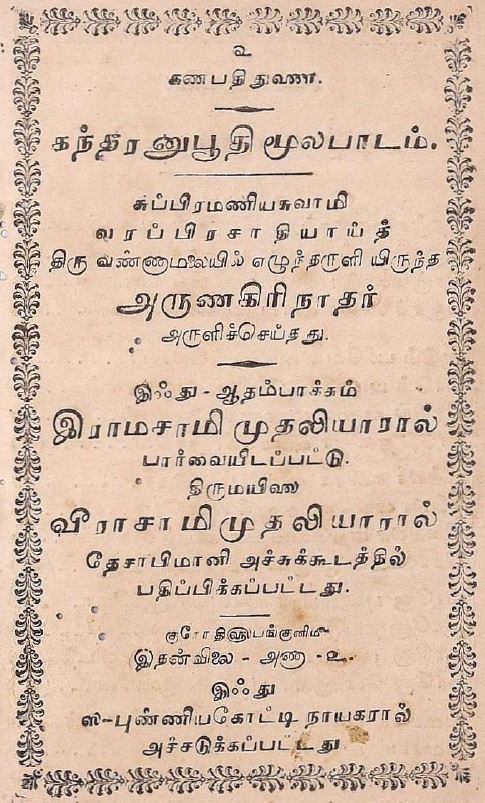 உ
கணபதி துவணா.
கந்தரனுபூதி மூலபாடம்.
சுப்பிரமணியசுவாமி
வரப்பிரசாதியாய்த்
திருவண்ணாமலையில் எழுந்தருளி யிருந்த
அருணகிரிநாதர்
அருளிச்செய்தது.
இஃது - ஆதம்பாக்கம்
இராமசாமி முதலியாரால்
பார்வையிடப்பட்டு.
திருமயிலை
வீராசாமிமுதலியாரால்
தேசாபிமானி அச்சுக்கூடத்தில்
பதிப்பிக்கப்பட்டது.
குரோதி௵பங்குனி௴
இதன்விலை - அணா - உ.
இஃது
ஸ-புண்ணியகோட்டி நாயகரால்
அச்சடுக்கப்பட்டது